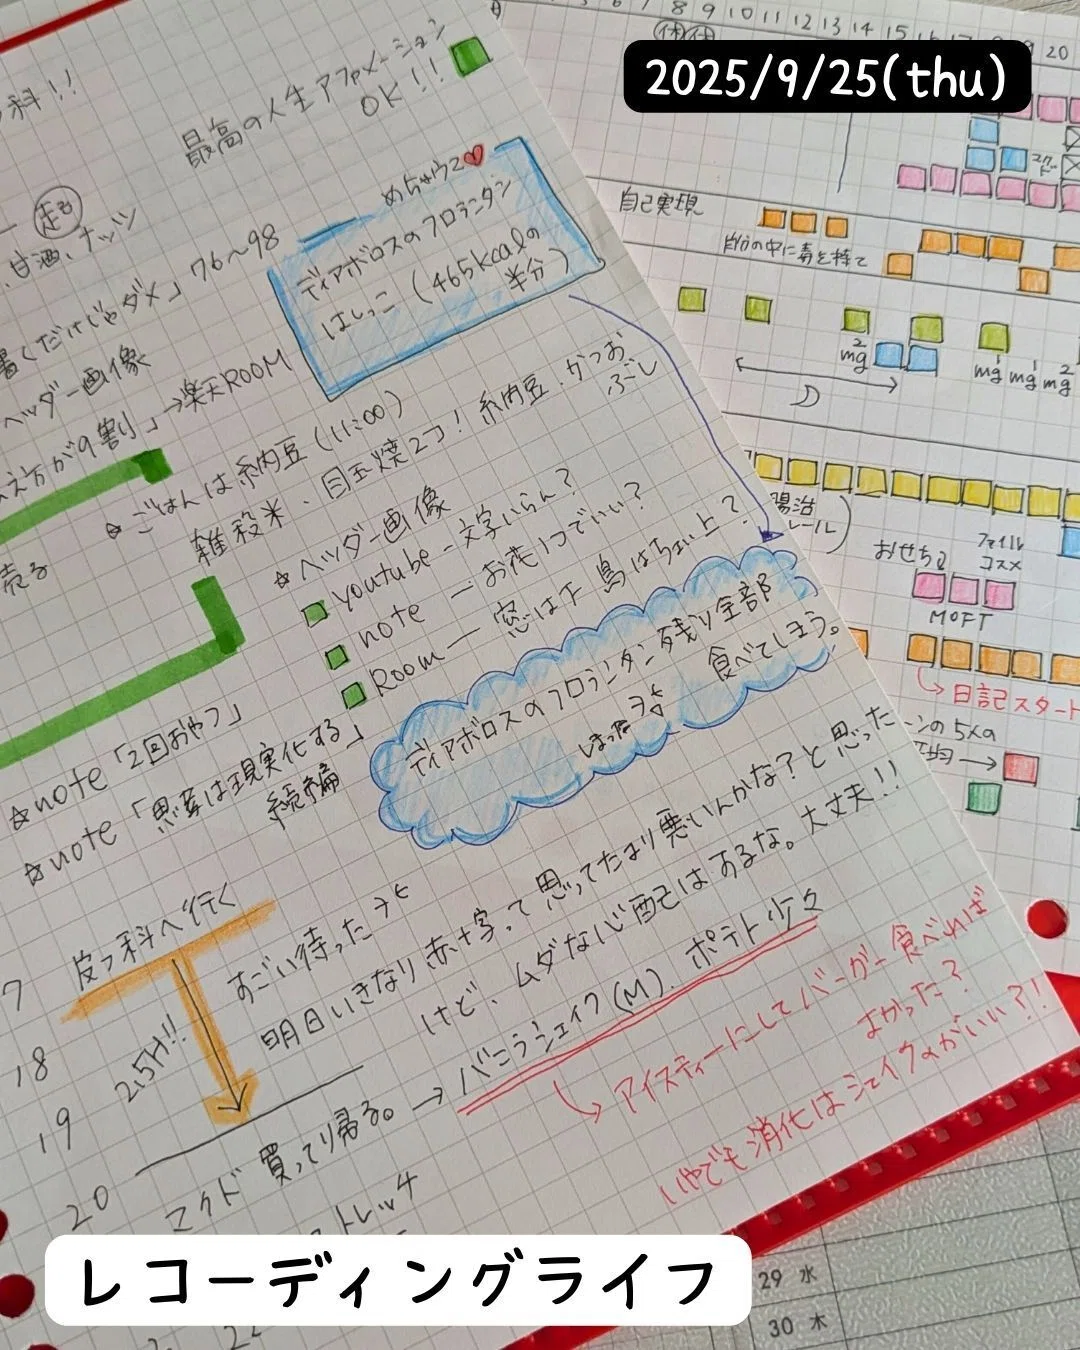 2025/9/25(thu)
科!!
最高の人生アファメーション
OK!!
走る
甘酒、ナッツ
書くだけじゃダメ」 76〜98
ヘッダー画像
え方が9割」→楽天ROOM
めちゃウマ
ディアボロスのフロランタン
はしっこ (465kcalの
半分)
☆ごはんは納豆 (11:00)
雑穀米、目玉焼2コ! 納豆、かつお
ぶし
☆ヘッダー画像
youtube - 文字いらん?
note — お花1コでいい?
Room — 窓は下 鳥はちょい上?
売る
☆note「2回おやつ」
☆note「思考は現実化する」
続編
ディアボロスのフロランタン残り全部
食べてしまう。
しまったヨ
17 皮フ科へ行く
18
19
20
2.5H!!
すごい待ったヨ
明日いきなり赤十字って思ってたより悪いんかな?と思った
けど、ムダな心配はあるな。大丈夫!!
マクド買って帰る。→バニラシェイク(M)、ポテト少々
アイスティーにしてバーガー食べれば
よかった?
いやでも消化はシェイクのがいい?!
ストレッチ
22
7 8 9 10 11 12 13 14 15 16
20
休 休
自己実現
自分の中に毒を持て
2
mg
1
mg
1
mg
2
mg
陽治
レール)
おせち
ファイル
コスメ
MOFT
日記スタート
平均→
29 水
30 木
レコーディングライフ